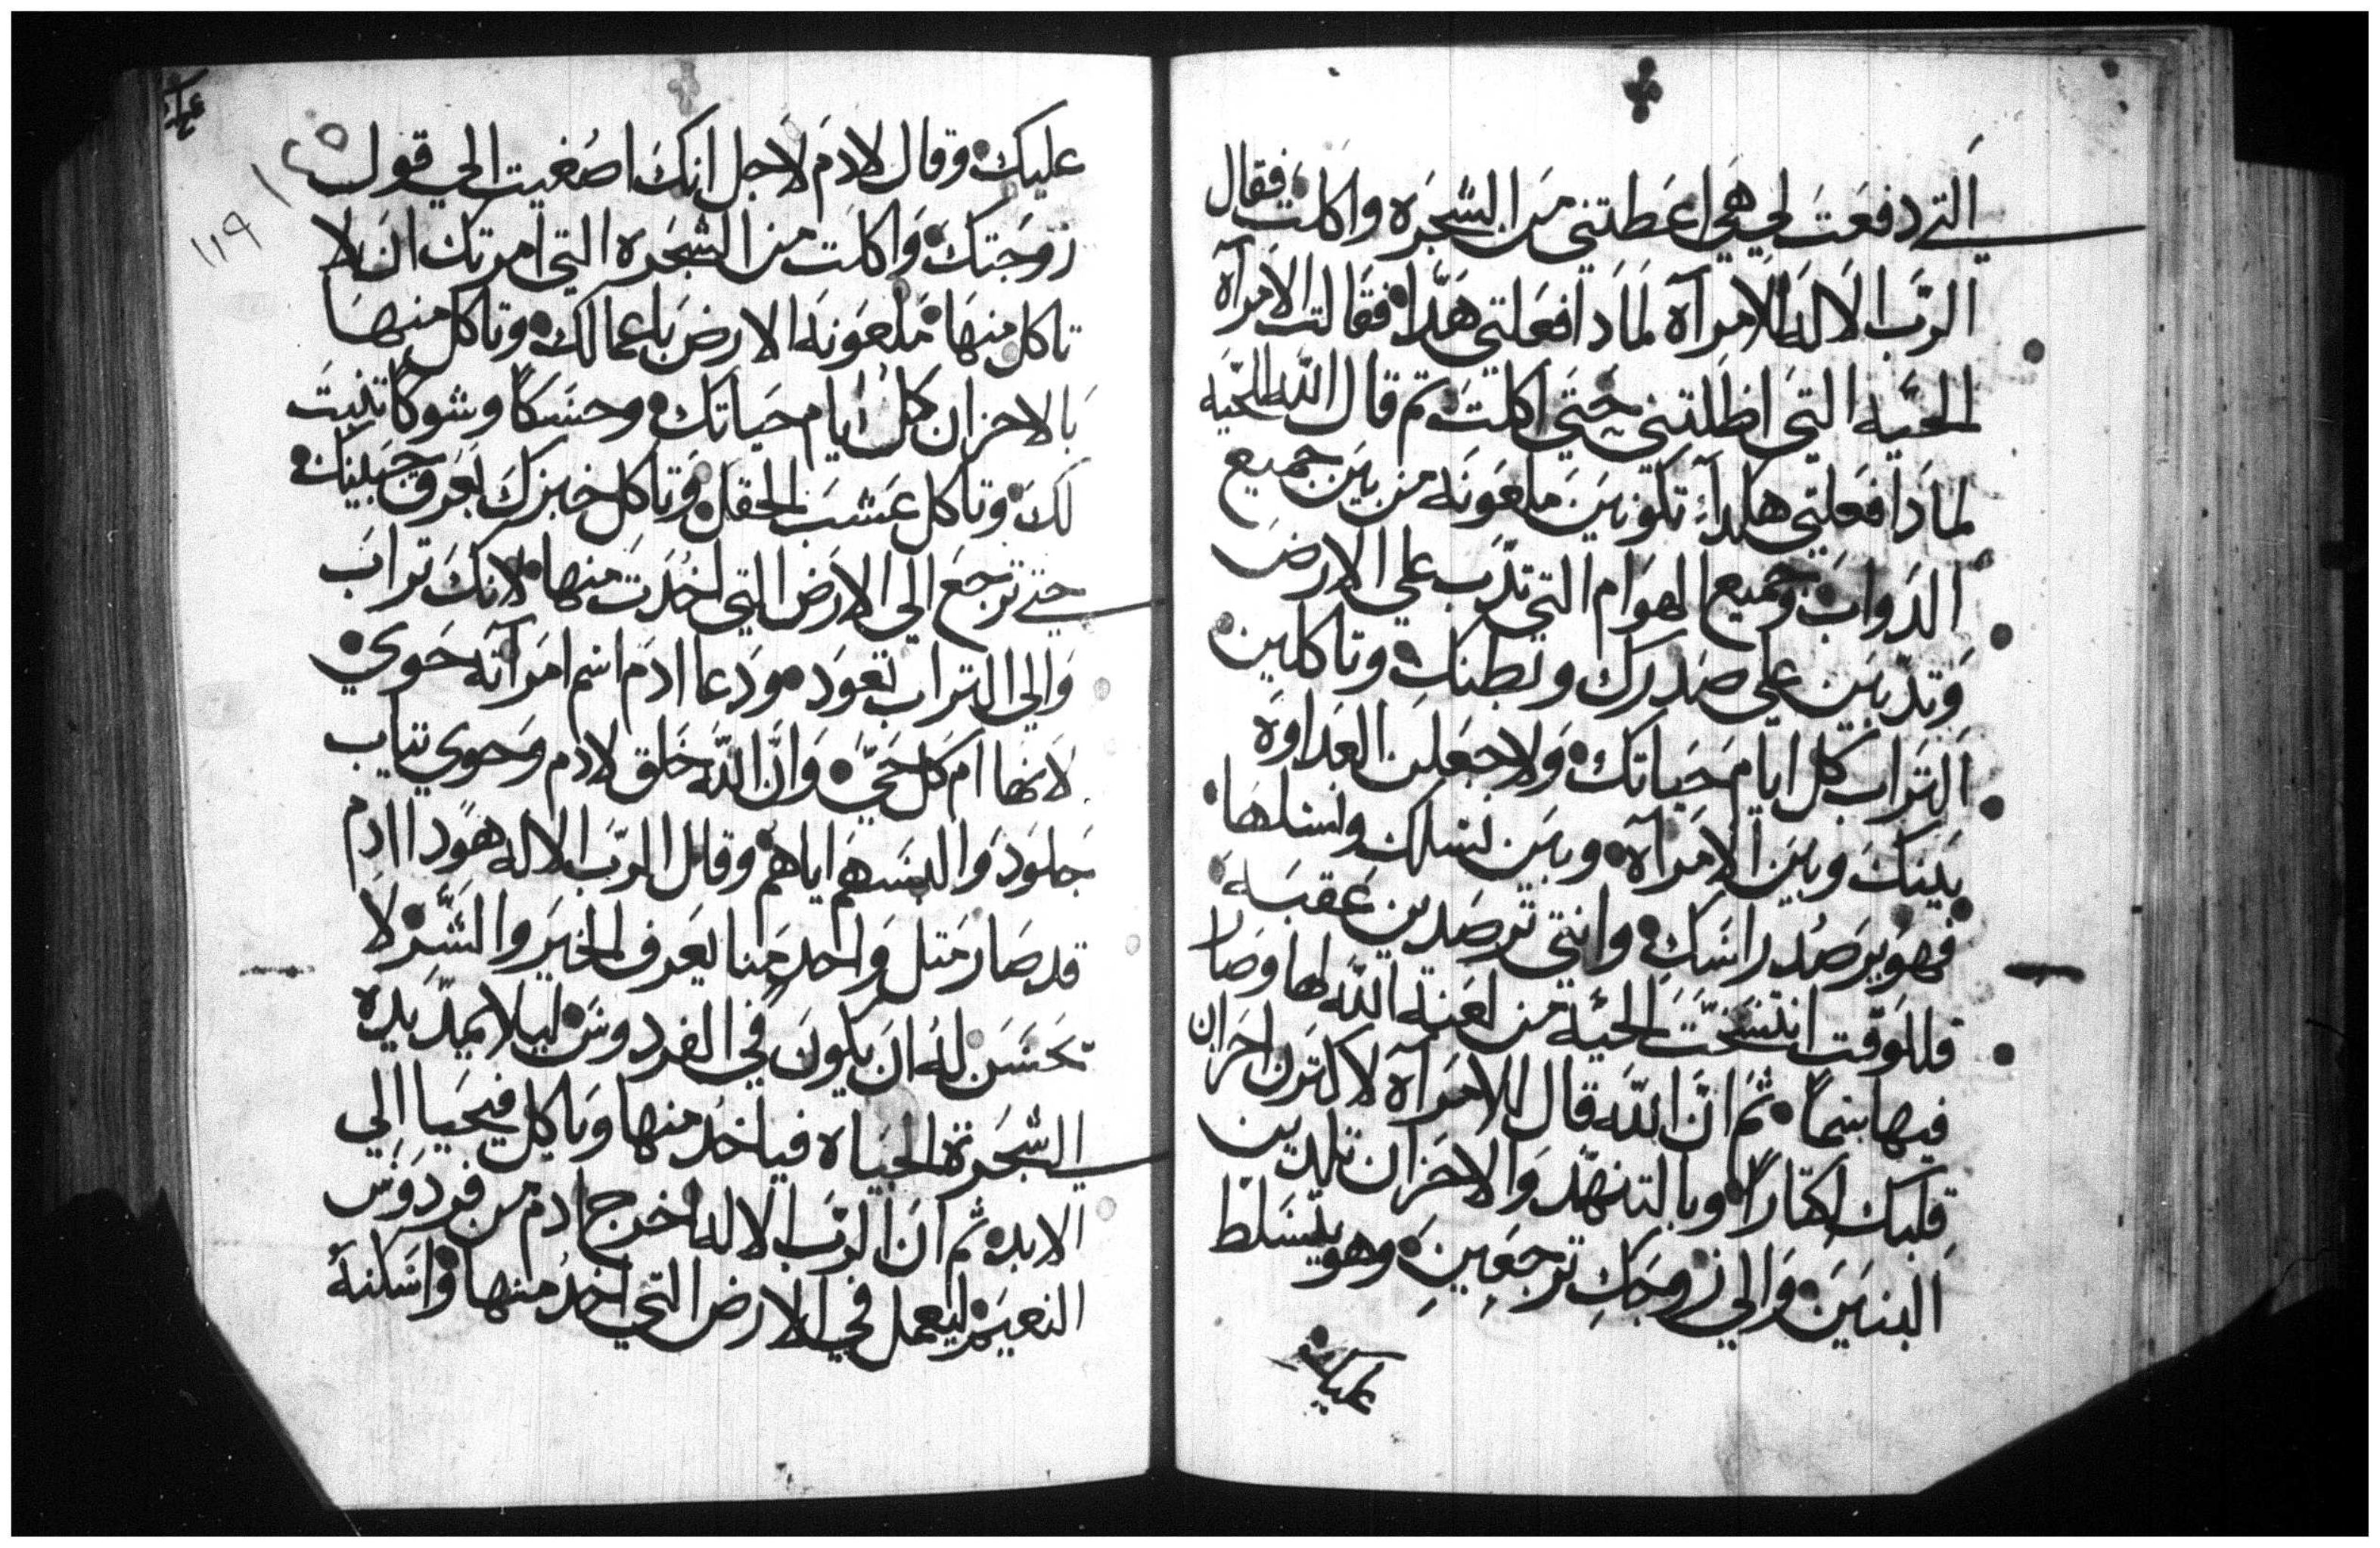 التي دفعت لي هي اعطتني من الشجره واكلت فقال
الرب الاله للامرآه لمادا فعلتي هدا فقالت الامرآه
الحيه التي اظلتني حتي اكلت تم قال الله للحيه
لمادا فعلتي هكدا تكونين ملعونه من بين جميع
الدواب وجميع الهوام التي تدب علي الارض
وتدبين علي صدرك وبطنك وتاكلين
التراب كل ايام حياتك ولاجعلن العداوه
بينك وبين الامرآه وبين نسلك ونسلها
فهو يرصد راسك وانتي ترصدين عقبه
فللوقت انتسخت الحيه من لعنة الله لها وصار
فيها سما ثم ان الله قال للامرآه لاكترن احزان
قلبك اكتارا وبالتنهد والاحزان تلدين
البنين والي زوجك ترجعين وهو يتسلط
عليك
عليك وقال لادم لاجل انك اصغيت الي قول
زوجتك واكلت من الشجره التي امرتك ان لا
تاكل منها ملعونه الارض باعمالك وتاكل منها
بالاحزان كل ايام حياتك وحسكا وشوكا تنبت
لك وتاكل عشب الحقل وتاكل خبزك بعرق جبينك
حتي ترجع الي الارض التي اخدت منها لانك تراب
والي التراب تعود ودعا ادم اسم امرآته حوي
لانها ام كل حي وان الله خلق لادم وحوي تياب
جلود والبسهم اياهم وقال الرب الاله هودا ادم
قد صار متل واحد منا يعرف الخير والشر لا
يحسن له ان يكون في الفردوس ليلا يمد يده
الي شجرة الحياه فياخد منها وياكل فيحيا الي
الابد ثم ان الرب الاله اخرج ادم من فردوس
النعيم ليعمل في الارض التي اخد منها واسكنه
١١٩